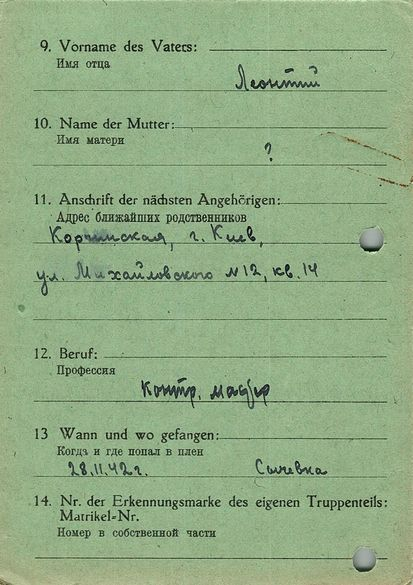 9. Vorname des Vaters:
Имя отца
Леонтий
10. Name der Mutter:
Имя матери
?
11. Anschrift der nächsten Angehörigen:
Адрес ближайших родственников
Корчинская, г. Киев,
ул. Михайловского N 12, кв. 14
12. Beruf:
Профессия
Контр. мастер
13 Wann und wo gefangen:
Когда и где попал в плен
28.11.42г. Сычевка
14. Nr. der Erkennungsmarke des eigenen Truppenteils:
Matrikel-Nr.
Номер в собственной части